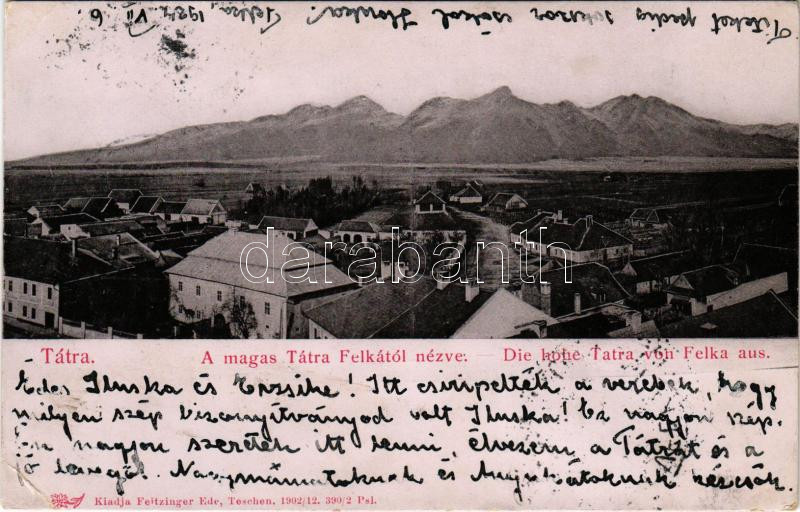 Titeket pedig sokszor csókol Ilonka. Felka, 1934. VII 6.
darabanth
Tátra. A magas Tátra Felkától nézve. — Die hohe Tatra von Felka aus.
Édes Iluska és Erzsike! Itt csiripelték a verebek, hogy
milyen szép bizonyítványod volt Iluska! Ez nagyon szép.
Én nagyon szeretek itt lenni, élvezem a Tátrát és a
jó levegőt. Nagymamátoknak és Anyukátoknak kézcsók.
Kiadja Feitzinger Ede, Teschen. 1902/12. 390/2 Psl.